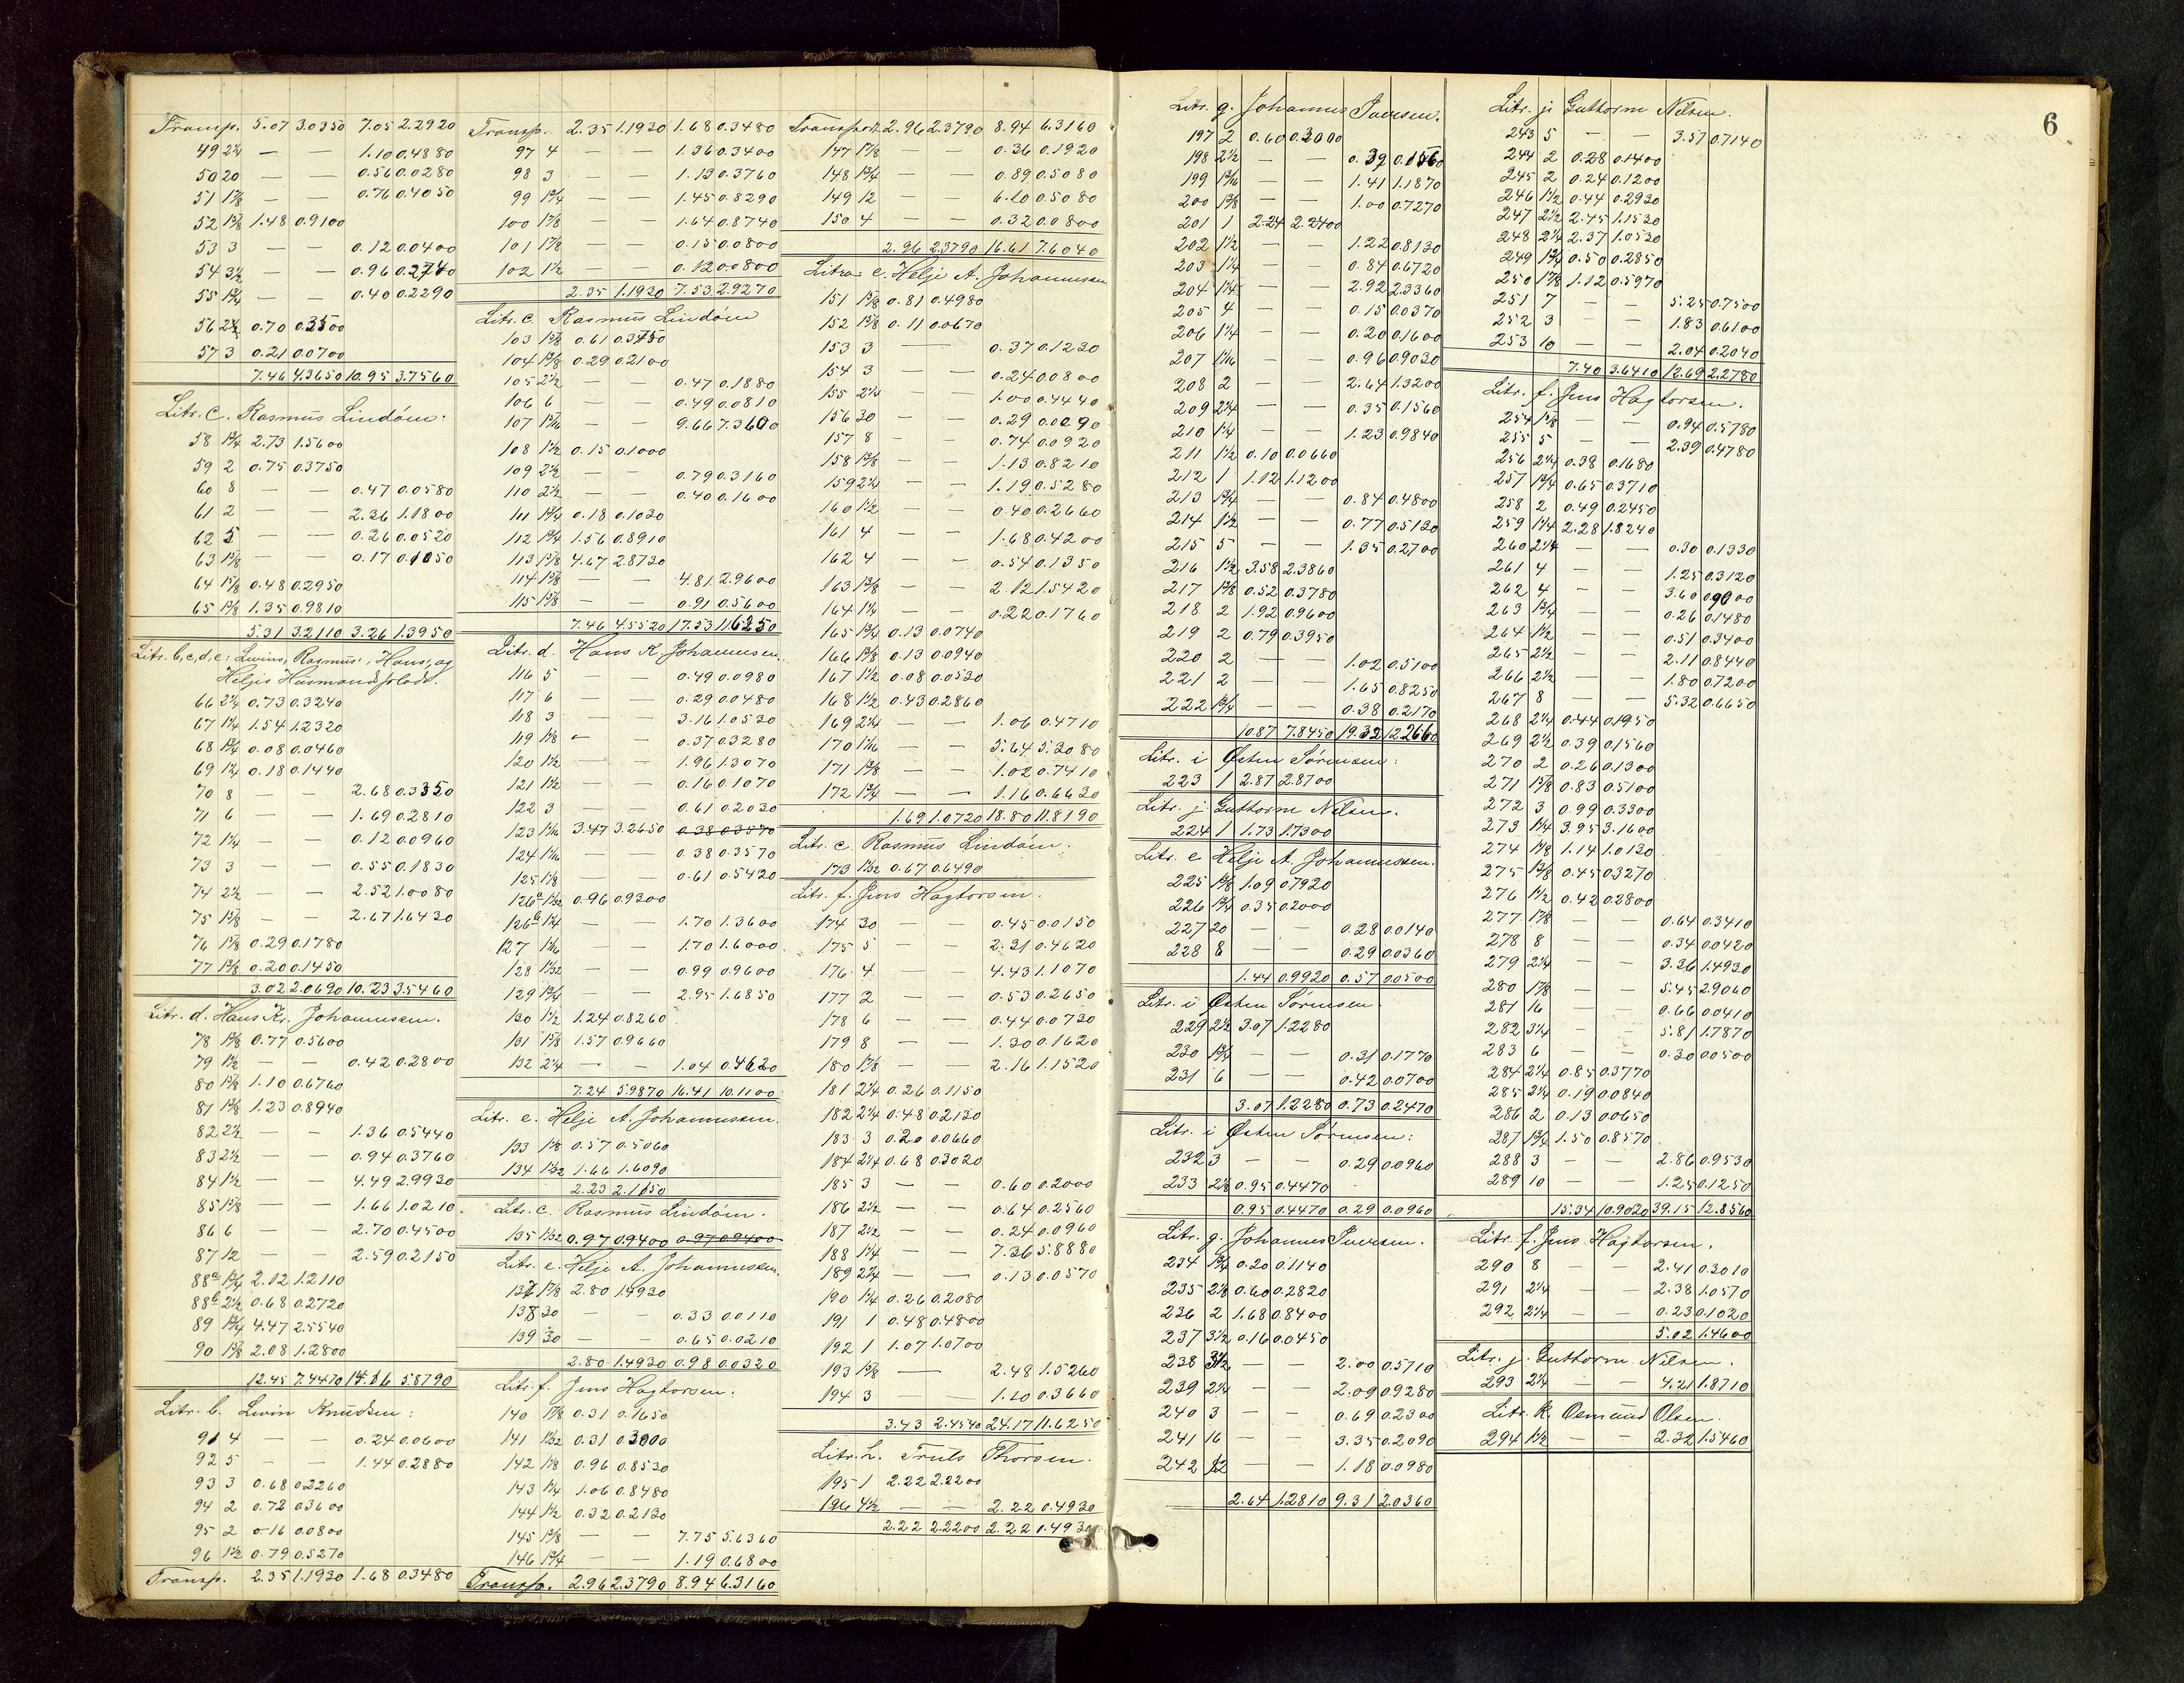 Transp. 5.07 3.0350 7.05 2.2920
49 2¼ — — 1.10 0.4880
50 20 — — 0.56 0.0280
51 1⅞ — — 0.76 0.4050
52 1⅝ 1.48 0.9100
53 3 — — 0.12 0.0400
54 3½ — — 0.96 0.2740
55 1¾ — — 0.40 0.2290
56 2½ 0.70 0.3500
57 3 0.21 0.0700
7.46 4.3650 10.95 3.7560
Litr. c. Rasmus Lindøm:
58 1¾ 2.73 1.5600
59 2 0.75 0.3750
60 8 — — 0.47 0.0580
61 2 — — 2.36 1.1800
62 5 — — 0.26 0.0520
63 1⅝ — — 0.17 0.1050
64 1⅝ 0.48 0.2950
65 1⅜ 1.35 0.9810
5.31 3.2110 3.26 1.3950
Litr. b, c, d, e: Lwins, Rasmus', Hans', og
Heljes Husmandsplads.
66 2¼ 0.73 0.3240
67 1¼ 1.54 1.2320
68 1¾ 0.08 0.0460
69 1¼ 0.18 0.1440
70 8 — — 2.68 0.3350
71 6 — — 1.69 0.2810
72 1¼ — — 0.12 0.0960
73 3 — — 0.55 0.1830
74 2½ — — 2.52 1.0080
75 1⅝ — — 2.67 1.6430
76 1⅝ 0.29 0.1780
77 1⅜ 0.20 0.1450
3.02 2.0690 10.23 3.5460
Litr. d. Hans Kr. Johannesen.
78 1⅜ 0.77 0.5600
79 1½ — — 0.42 0.2800
80 1⅝ 1.10 0.6760
81 1⅜ 1.23 0.8940
82 2½ — — 1.36 0.5440
83 2½ — — 0.94 0.3760
84 1½ — — 4.49 2.9930
85 1⅝ — — 1.66 1.0210
86 6 — — 2.70 0.4500
87 12 — — 2.59 0.2150
88a 1¾ 2.12 1.2110
88b 2½ 0.68 0.2720
89 1¾ 4.47 2.5540
90 1⅝ 2.08 1.2800
12.45 7.4470 14.16 5.8790
Litr. b. Lwin Knudsen:
91 4 — — 0.24 0.0600
92 5 — — 1.44 0.2880
93 3 0.68 0.2260
94 2 0.72 0.3600
95 2 0.16 0.0800
96 1½ 0.79 0.5270
Transp. 2.35 1.1930 1.68 0.3480
Transp. 2.35 1.1930 1.68 0.3480
97 4 — — 1.36 0.3400
98 3 — — 1.13 0.3760
99 1¾ — — 1.45 0.8290
100 1⅞ — — 1.64 0.8740
101 1⅞ — — 0.15 0.0800
102 1½ — — 0.12 0.0800
2.35 1.1930 7.53 2.9270
Litr. c. Rasmus Lindøm
103 1⅝ 0.61 0.3750
104 1⅜ 0.29 0.2100
105 2½ — — 0.47 0.1880
106 6 — — 0.49 0.0810
107 1 5/16 — — 9.66 7.3600
108 1½ 0.15 0.1000
109 2½ — — 0.79 0.3160
110 2½ — — 0.40 0.1600
111 1¾ 0.18 0.1030
112 1¾ 1.56 0.8910
113 1⅝ 4.67 2.8730
114 1⅝ — — 4.81 2.9600
115 1⅝ — — 0.91 0.5600
7.46 4.5520 17.53 11.6250
Litr. d. Hans K. Johannesen.
116 5 — — 0.49 0.0980
117 6 — 0.29 0.0480
118 3 — — 3.16 1.0530
119 1⅛ — — 0.37 0.3280
120 1½ — — 1.96 1.3070
121 1½ — — 0.16 0.1070
122 3 — 0.61 0.2030
123 1 1/16 3.47 3.2650 0.38 0.3570
124 1 1/16 — — 0.38 0.3570
125 1⅛ — — 0.61 0.5420
126a 1 1/32 0.96 0.9300
126b 1¼ — — 1.70 1.3600
127 1 1/16 — — 1.70 1.6000
128 1 1/32 — — 0.99 0.9600
129 1¾ — — 2.95 1.6850
130 1½ 1.24 0.8260
131 1⅝ 1.57 0.9660
132 2¼ — — 1.04 0.4620
7.24 5.9870 16.41 10.1100
Litr. e. Helje A. Johannessen.
133 1⅛ 0.57 0.5060
134 1 1/32 1.66 1.6090
2.23 2.1150
Litr. c. Rasmus Lindøm.
135 1 1/32 0.97 0.9400 0.97 0.9400
Litr. e. Helje A. Johannesen.
137 1⅞ 2.80 1.4930
138 30 — — 0.33 0.0110
139 30 — — 0.65 0.0210
2.80 1.4930 0.98 0.0320
Litr. f. Jens Hagtorsen:
140 1⅞ 0.31 0.1650
141 1 1/32 0.31 0.3000
142 1⅛ 0.96 0.8530
143 1¼ 1.06 0.8480
144 1½ 0.32 0.2130
145 1⅜ — — 7.75 5.6360
146 1¾ — — 1.19 0.6800
Transp. 2.96 2.3790 8.94 6.3160
Transport 2.96 2.3790 8.94 6.3160
147 1⅞ — — 0.36 0.1920
148 1¾ — — 0.89 0.5080
149 12 — — 6.10 0.5080
150 4 — — 0.32 0.0800
2.96 2.3790 16.61 7.6040
Litra e. Helje A. Johannessen
151 1⅝ 0.81 0.4980
152 1⅝ 0.11 0.0670
153 3 — 0.37 0.1230
154 3 — — 0.24 0.0800
155 2¼ — — 1.00 0.4440
156 30 — 0.29 0.0090
157 8 — — 0.74 0.0920
158 1⅜ — — 1.13 0.8210
159 2¼ — — 1.19 0.5280
160 1½ — — 0.40 0.2660
161 4 — — 1.68 0.4200
162 4 — — 0.54 0.1350
163 1⅜ — — 2.12 1.5420
164 1¼ — — 0.22 0.1760
165 1¾ 0.13 0.0740
166 1⅜ 0.13 0.0940
167 1½ 0.08 0.0530
168 1½ 0.43 0.2860
169 2¼ — — 1.06 0.4710
170 1 1/16 — — 5.64 5.3080
171 1⅜ — — 1.02 0.7410
172 1¾ — — 1.16 0.6630
1.69 1.0720 18.80 11.8190
Litr. c Rasmus Lindøm:
173 1 1/32 0.67 0.6490
Litr. f. Jens Hagtorsen.
174 30 — — 0.45 0.0150
175 5 — 2.31 0.4620
176 4 — — 4.43 1.1070
177 2 — — 0.53 0.2650
178 6 — — 0.44 0.0730
179 8 — — 1.30 0.1620
180 1⅞ — — 2.16 1.1520
181 2¼ 0.26 0.1150
182 2¼ 0.48 0.2130
183 3 0.20 0.0660
184 2¼ 0.68 0.3020
185 3 — — 0.60 0.2000
186 2½ — — 0.64 0.2560
187 2½ — — 0.24 0.0960
188 1¼ — — 7.36 5.8880
189 2¼ — — 0.13 0.0570
190 1¼ 0.26 0.2080
191 1 0.48 0.4800
192 1 1.07 1.0700
193 1⅝ — — 2.48 1.5260
194 3 — 1.10 0.3660
3.43 2.4540 24.17 11.6250
Litr. h. Truls Thorsen.
195 1 2.22 2.2200
196 4½ — — 2.22 0.4930
2.22 2.2200 2.22 0.4930
Litr. g. Johannes Iversen.
197 2 0.60 0.3000
198 2½ — — 0.39 0.1560
199 1 3/16 — — 1.41 1.1870
200 1⅜ — — 1.00 0.7270
201 1 2.24 2.2400
202 1½ — — 1.22 0.8130
203 1¼ — — 0.84 0.6720
204 1¼ — — 2.92 2.3360
205 4 — — 0.15 0.0370
206 1¼ — — 0.20 0.1600
207 1 1/16 — — 0.96 0.9030
208 2 — — 2.64 1.3200
209 2¼ — — 0.35 0.1560
210 1¼ — — 1.23 0.9840
211 1½ 0.10 0.0660
212 1 1.12 1.1200
213 1¾ — — 0.84 0.4800
214 1½ — — 0.77 0.5130
215 5 — — 1.35 0.2700
216 1½ 3.58 2.3860
217 1⅜ 0.52 0.3780
218 2 1.92 0.9600
219 2 0.79 0.3950
220 2 — — 1.02 0.5100
221 2 — — 1.65 0.8250
222 1¾ — — 0.38 0.2170
10.87 7.8450 19.32 12.2660
Litr. i Østen Sørensen:
223 1 2.87 2.8700
Litr. j Guthorm Nilsen.
224 1 1.73 1.7300
Litr. e Helje A. Johannessen.
225 1⅜ 1.09 0.7920
226 1¾ 0.35 0.2000
227 20 — — 0.28 0.0140
228 8 — — 0.29 0.0360
1.44 0.9920 0.57 0.0500
Litr. i Østen Sørensen
229 2½ 3.07 1.2280
230 1¾ — — 0.31 0.1770
231 6 — — 0.42 0.0700
3.07 1.2280 0.73 0.2470
Litr. i Østen Sørensen:
232 3 — — 0.29 0.0960
233 2⅛ 0.95 0.4470
0.95 0.4470 0.29 0.0960
Litr. g. Johannes Iversen.
234 1¾ 0.20 0.1140
235 2⅛ 0.60 0.2820
236 2 1.68 0.8400
237 3½ 0.16 0.0450
238 3½ — — 2.00 0.5710
239 2¼ — — 2.09 0.9280
240 3 — — 0.69 0.2300
241 16 — — 3.35 0.2090
242 12 — — 1.18 0.0980
2.64 1.2810 9.31 2.0360
6
Litr. j. Guthorm Nilsen.
243 5 — — 3.57 0.7140
244 2 0.28 0.1400
245 2 0.24 0.1200
246 1½ 0.44 0.2930
247 2½ 2.45 1.1530
248 2¼ 2.37 1.0530
249 1¾ 0.50 0.2850
250 1⅞ 1.12 0.5970
251 7 — — 5.25 0.7500
252 3 — — 1.83 0.6100
253 10 — — 2.04 0.2040
7.40 3.6410 12.69 2.2780
Litr. f. Jens Hagtorsen.
254 1⅝ — — 0.94 0.5780
255 5 — — 2.39 0.4780
256 2¼ 0.38 0.1680
257 1¾ 0.65 0.3710
258 2 0.49 0.2450
259 1¼ 2.28 1.8240
260 2¼ — — 0.30 0.1330
261 4 — 1.25 0.3120
262 4 — — 3.60 0.9000
263 1¾ — — 0.26 0.1480
264 1½ — — 0.51 0.3400
265 2½ — — 2.11 0.8440
266 2½ — — 1.80 0.7200
267 8 — — 5.32 0.6650
268 2¼ 0.44 0.1950
269 2½ 0.39 0.1560
270 2 0.26 0.1300
271 1⅝ 0.83 0.5100
272 3 0.99 0.3300
273 1¼ 3.95 3.1600
274 1⅛ 1.14 1.0130
275 1⅜ 0.45 0.3270
276 1½ 0.42 0.2800
277 1⅞ — — 0.64 0.3410
278 8 — — 0.34 0.0420
279 2¼ — — 3.36 1.4930
280 1⅞ — — 5.45 2.9060
281 16 — 0.66 0.0410
282 3¼ — — 5.81 1.7870
283 6 — — 0.30 0.0500
284 2¼ 0.85 0.3770
285 2¼ 0.19 0.0840
286 2 0.13 0.0650
287 1¾ 1.50 0.8570
288 3 — — 2.86 0.9530
289 10 — — 1.25 0.1250
15.34 10.9020 39.15 12.8560
Litr. f. Jens Hagtorsen.
290 8 — — 2.41 0.3010
291 2¼ — — 2.38 1.0570
292 2¼ — — 0.23 0.1020
5.02 1.4600
Litr. j. Guthorm Nilsen.
293 2¼ — — 4.21 1.8710
Litr. K. Osmund Olsen.
294 1½ — — 2.32 1.5460